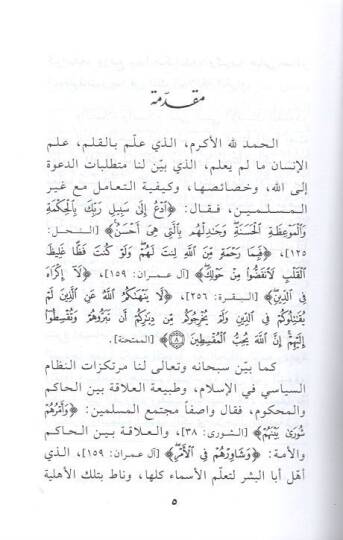 مقدّمة
الحمد لله الأكرم، الذي علّم بالقلم، علم
الإنسان ما لم يعلم، الذي بيّن لنا متطلبات الدعوة
إلى الله، وخصائصها، وكيفية التعامل مع غير
المسلمين، فقال: ﴿ٱدْعُ إِلَىٰ سَبِيلِ رَبِّكَ بِٱلْحِكْمَةِ
وَٱلْمَوْعِظَةِ ٱلْحَسَنَةِ وَجَٰدِلْهُم بِٱلَّتِي هِيَ أَحْسَنُ﴾ [النحل:
١٢٥]، ﴿فَبِمَا رَحْمَةٍ مِّنَ ٱللَّهِ لِنتَ لَهُمْ وَلَوْ كُنتَ فَظًّا غَلِيظَ
ٱلْقَلْبِ لَٱنفَضُّوا۟ مِنْ حَوْلِكَ﴾ [آل عمران: ١٥٩]، ﴿لَآ إِكْرَاهَ
فِي ٱلدِّينِ﴾ [البقرة: ٢٥٦]، ﴿لَّا يَنْهَىٰكُمُ ٱللَّهُ عَنِ ٱلَّذِينَ لَمْ
يُقَٰتِلُوكُمْ فِي ٱلدِّينِ وَلَمْ يُخْرِجُوكُم مِّن دِيَٰرِكُمْ أَن تَبَرُّوهُمْ وَتُقْسِطُوٓا۟
إِلَيْهِمْ إِنَّ ٱللَّهَ يُحِبُّ ٱلْمُقْسِطِينَ ﴿٨﴾﴾ [الممتحنة].
كما بيّن سبحانه وتعالى لنا مرتكزات النظام
السياسي في الإسلام، وطبيعة العلاقة بين الحاكم
والمحكوم، فقال واصفاً مجتمع المسلمين: ﴿وَأَمْرُهُمْ
شُورَىٰ بَيْنَهُمْ﴾ [الشورى: ٣٨]، والعلاقة بين الحاكم
والأمة: ﴿وَشَاوِرْهُمْ فِي ٱلْأَمْرِ﴾ [آل عمران: ١٥٩]، الذي
أهّل أبا البشر لتعلّم الأسماء كلها، وناط بتلك الأهلية
٥